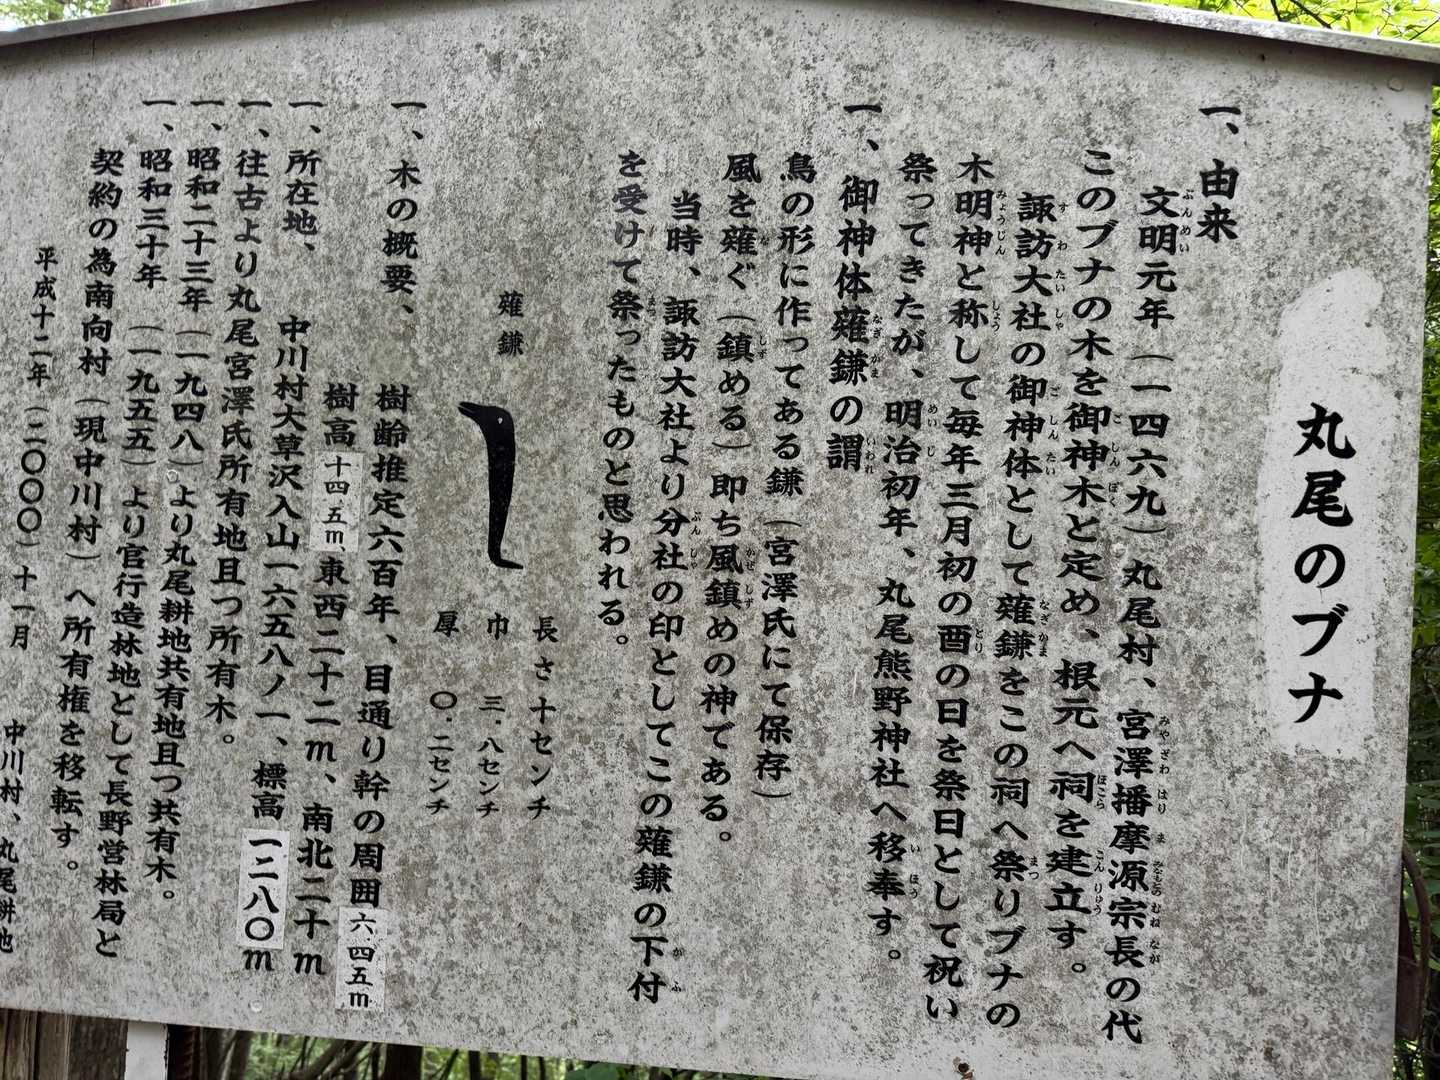 丸尾のブナ
一、由来
文明元年（一四六九）丸尾村、宮澤播摩源宗長の代
このブナの木を御神木と定め、根元へ祠を建立す。
諏訪大社の御神体として薙鎌をこの祠へ祭りブナの
木明神と称して毎年三月初の酉の日を祭日として祝い
祭ってきたが、明治初年、丸尾熊野神社へ移奉す。
一、御神体薙鎌の謂
鳥の形に作ってある鎌（宮澤氏にて保存）
風を薙ぐ（鎮める）即ち風鎮めの神である。
当時、諏訪大社より分社の印としてこの薙鎌の下付
を受けて祭ったものと思われる。
薙鎌
長さ十センチ
巾 三.八センチ
厚 〇.二センチ
一、木の概要、樹齢推定六百年、目通り幹の周囲六.四五m
樹高十四五m、東西二十二m、南北二十m
一、所在地、中川村大草沢入山一六五八ノ一、標高一二八〇m
一、往古より丸尾宮澤氏所有地且つ所有木。
一、昭和二十三年（一九四八）より丸尾耕地共有地且つ共有木。
一、昭和三十年（一九五五）より官行造林地として長野営林局と
契約の為南向村（現中川村）へ所有権を移転す。
平成十二年（二〇〇〇）十一月
中川村、丸尾耕地